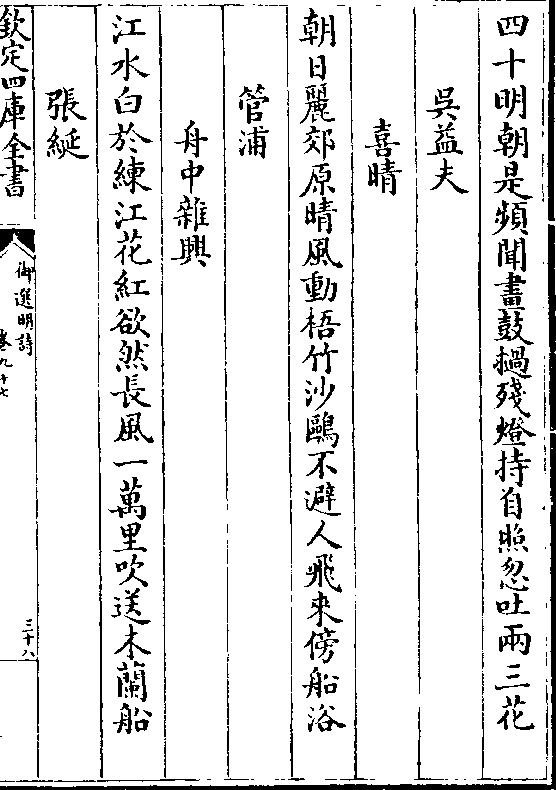 四十明朝是頻聞畫鼓撾殘燈持自照忽吐兩三花
吳益夫
喜晴
朝日麗郊原晴風動梧竹沙鷗不避人飛來傍船浴
管浦
舟中雜興
江水白於練江花紅欲然長風一萬里吹送木蘭船
張綖
欽定四庫全書
御選明詩
卷九十七
三十八